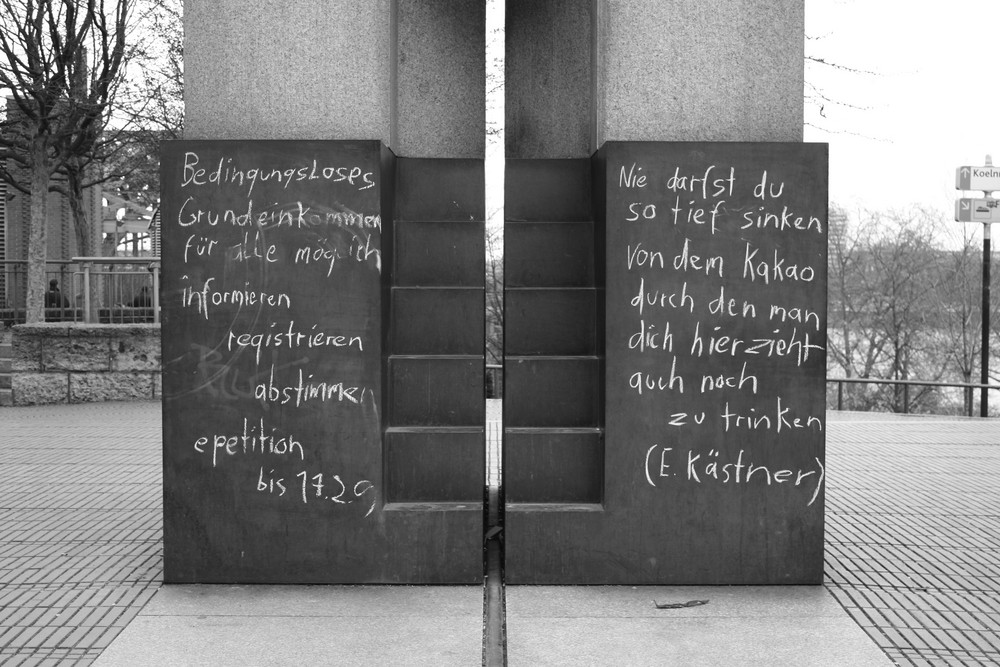 Bedingungsloses
Grundeinkommen
für alle möglich
informieren
registrieren
abstimmen
epetition
bis 17.2.9
Nie darfst du
so tief sinken
von dem Kakao
durch den man
dich hierzieht
auch noch
zu trinken
(E. Kästner)